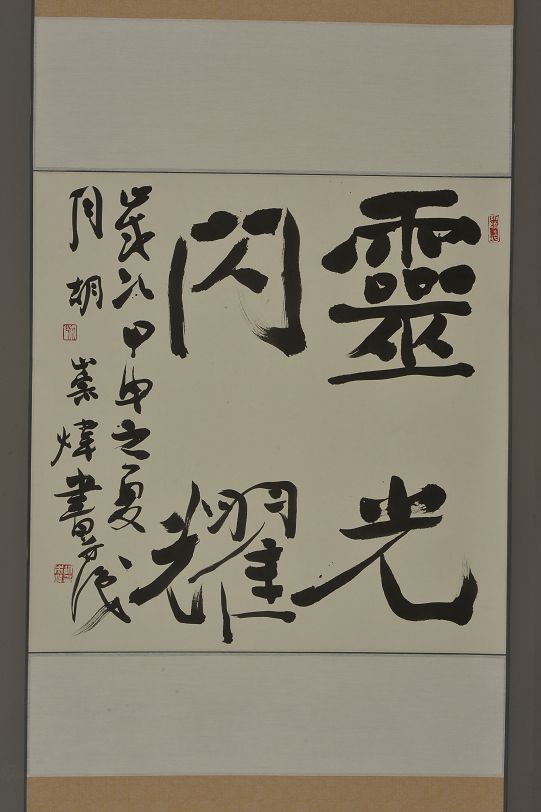 靈光
閃耀
歲次甲申之夏
月胡崇煒書